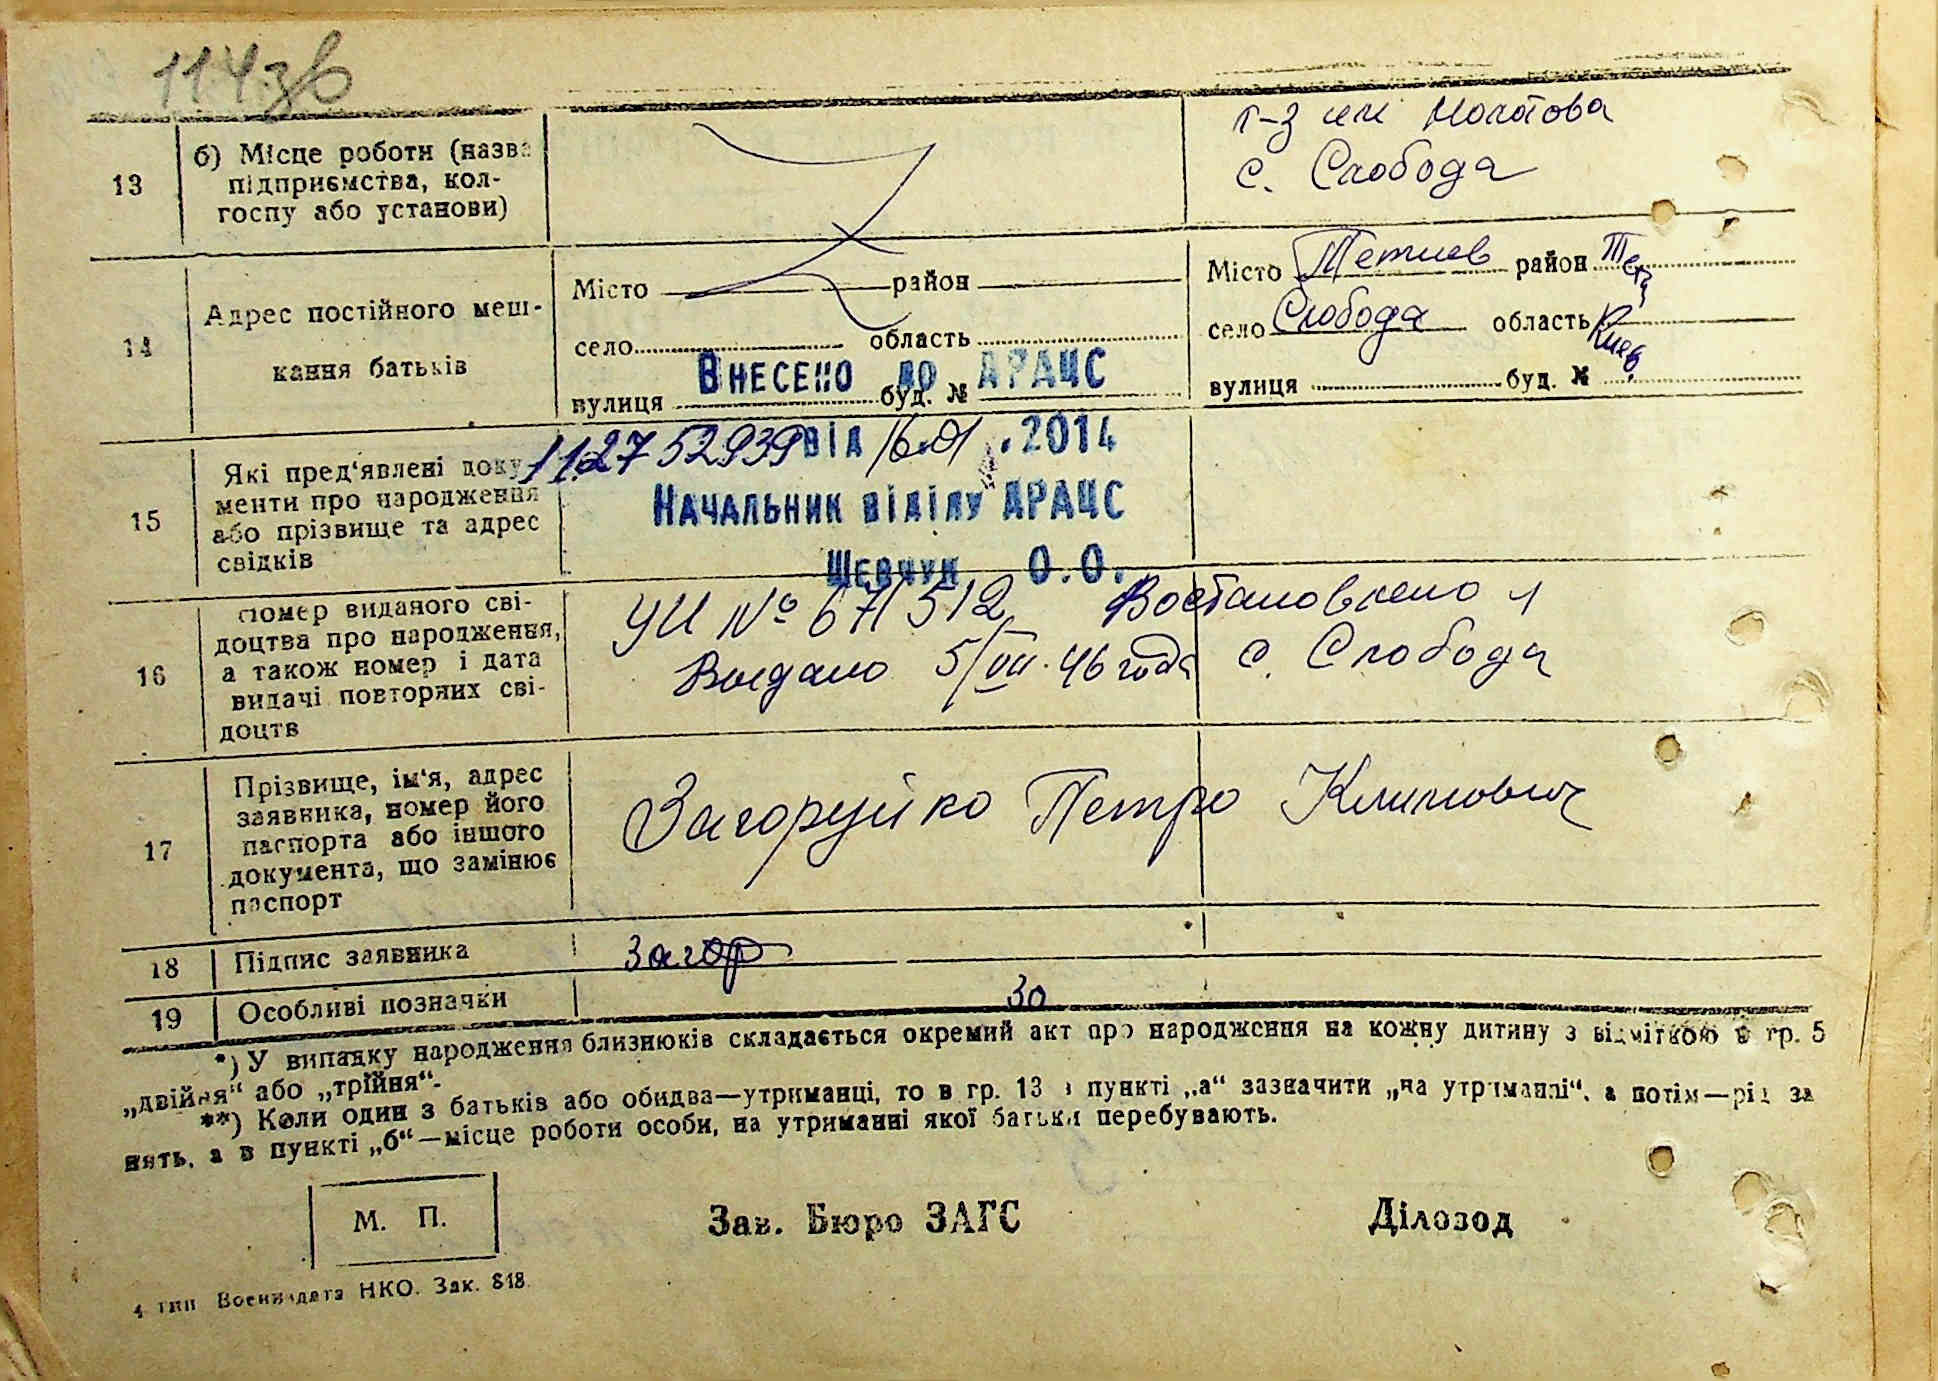 114 зв
13 б) Місце роботи (назва підприємства, колгоспу або установи)
к-з им Молотова
с. Слобода
14 Адрес постійного мешкання батьків
Місто район
село область
вулиця буд. №
Місто Тетиев район Тет.
село Слобода область Киев.
вулиця буд. №
Внесено до ДРАЦС
1127 52939 від 16.01.2014
Начальник відділу ДРАЦС
Шевчук О.О.
15 Які пред'явлені документи про народження або прізвище та адрес свідків
16 Номер виданого свідоцтва про народження, а також номер і дата видачі повторних свідоцтв
УИ № 671512 Востановлено
Выдано 5/VII.46 года с. Слобода
17 Прізвище, ім'я, адрес заявника, номер його паспорта або іншого документа, що замінює паспорт
Загоруйко Петро Климович
18 Підпис заявника
Загор
19 Особливі позначки
30
*) У випадку народження близнюків складається окремий акт про народження на кожну дитину з відміткою в гр. 5
„двійня“ або „трійня“.
**) Коли один з батьків або обидва—утриманці, то в гр. 13 в пункті „а“ зазначити „на утриманні“, а потім—рід за
нять, а в пункті „б“—місце роботи особи, на утриманні якої батьки перебувають.
М. П.
Зав. Бюро ЗАГС
Діловод
4 тип Воениздата НКО. Зак. 818.